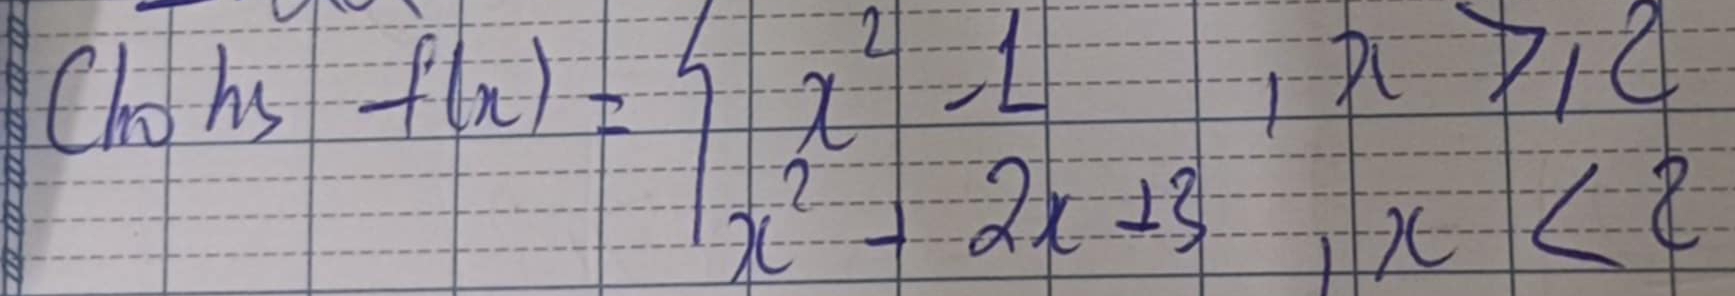 Cho hs f(x) = { x² - 1 , x ≥ 2
x² + 2x + 3 , x < 2